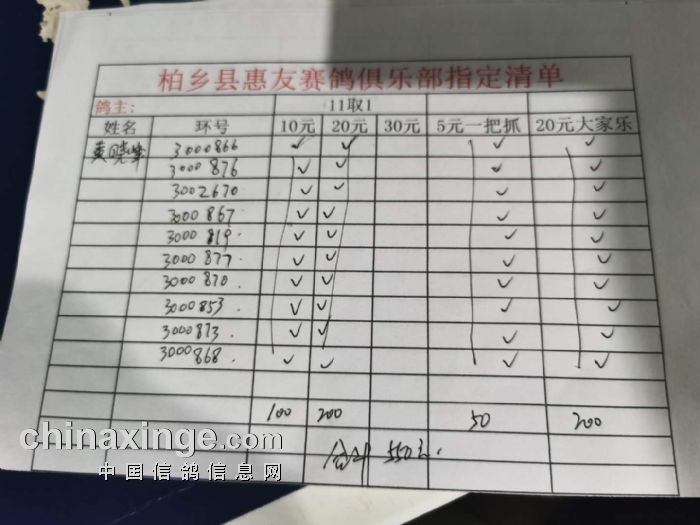 柏乡县惠友赛鸽俱乐部指定清单
鸽主: 11取1
姓名 环号 10元 20元 30元 5元一把抓 20元大家乐
黄晓峰 3000866 ✓ ✓ ✓ ✓
3000876 ✓ ✓ ✓ ✓
3002670 ✓ ✓ ✓ ✓
3000867 ✓ ✓ ✓ ✓
3000819 ✓ ✓ ✓ ✓
3000877 ✓ ✓ ✓ ✓
3000870 ✓ ✓ ✓ ✓
3000853 ✓ ✓ ✓ ✓
3000873 ✓ ✓ ✓ ✓
3000868 ✓ ✓ ✓ ✓
100 200 50 200
合计 550元.
chinaxinge.com
中国信鸽信息网